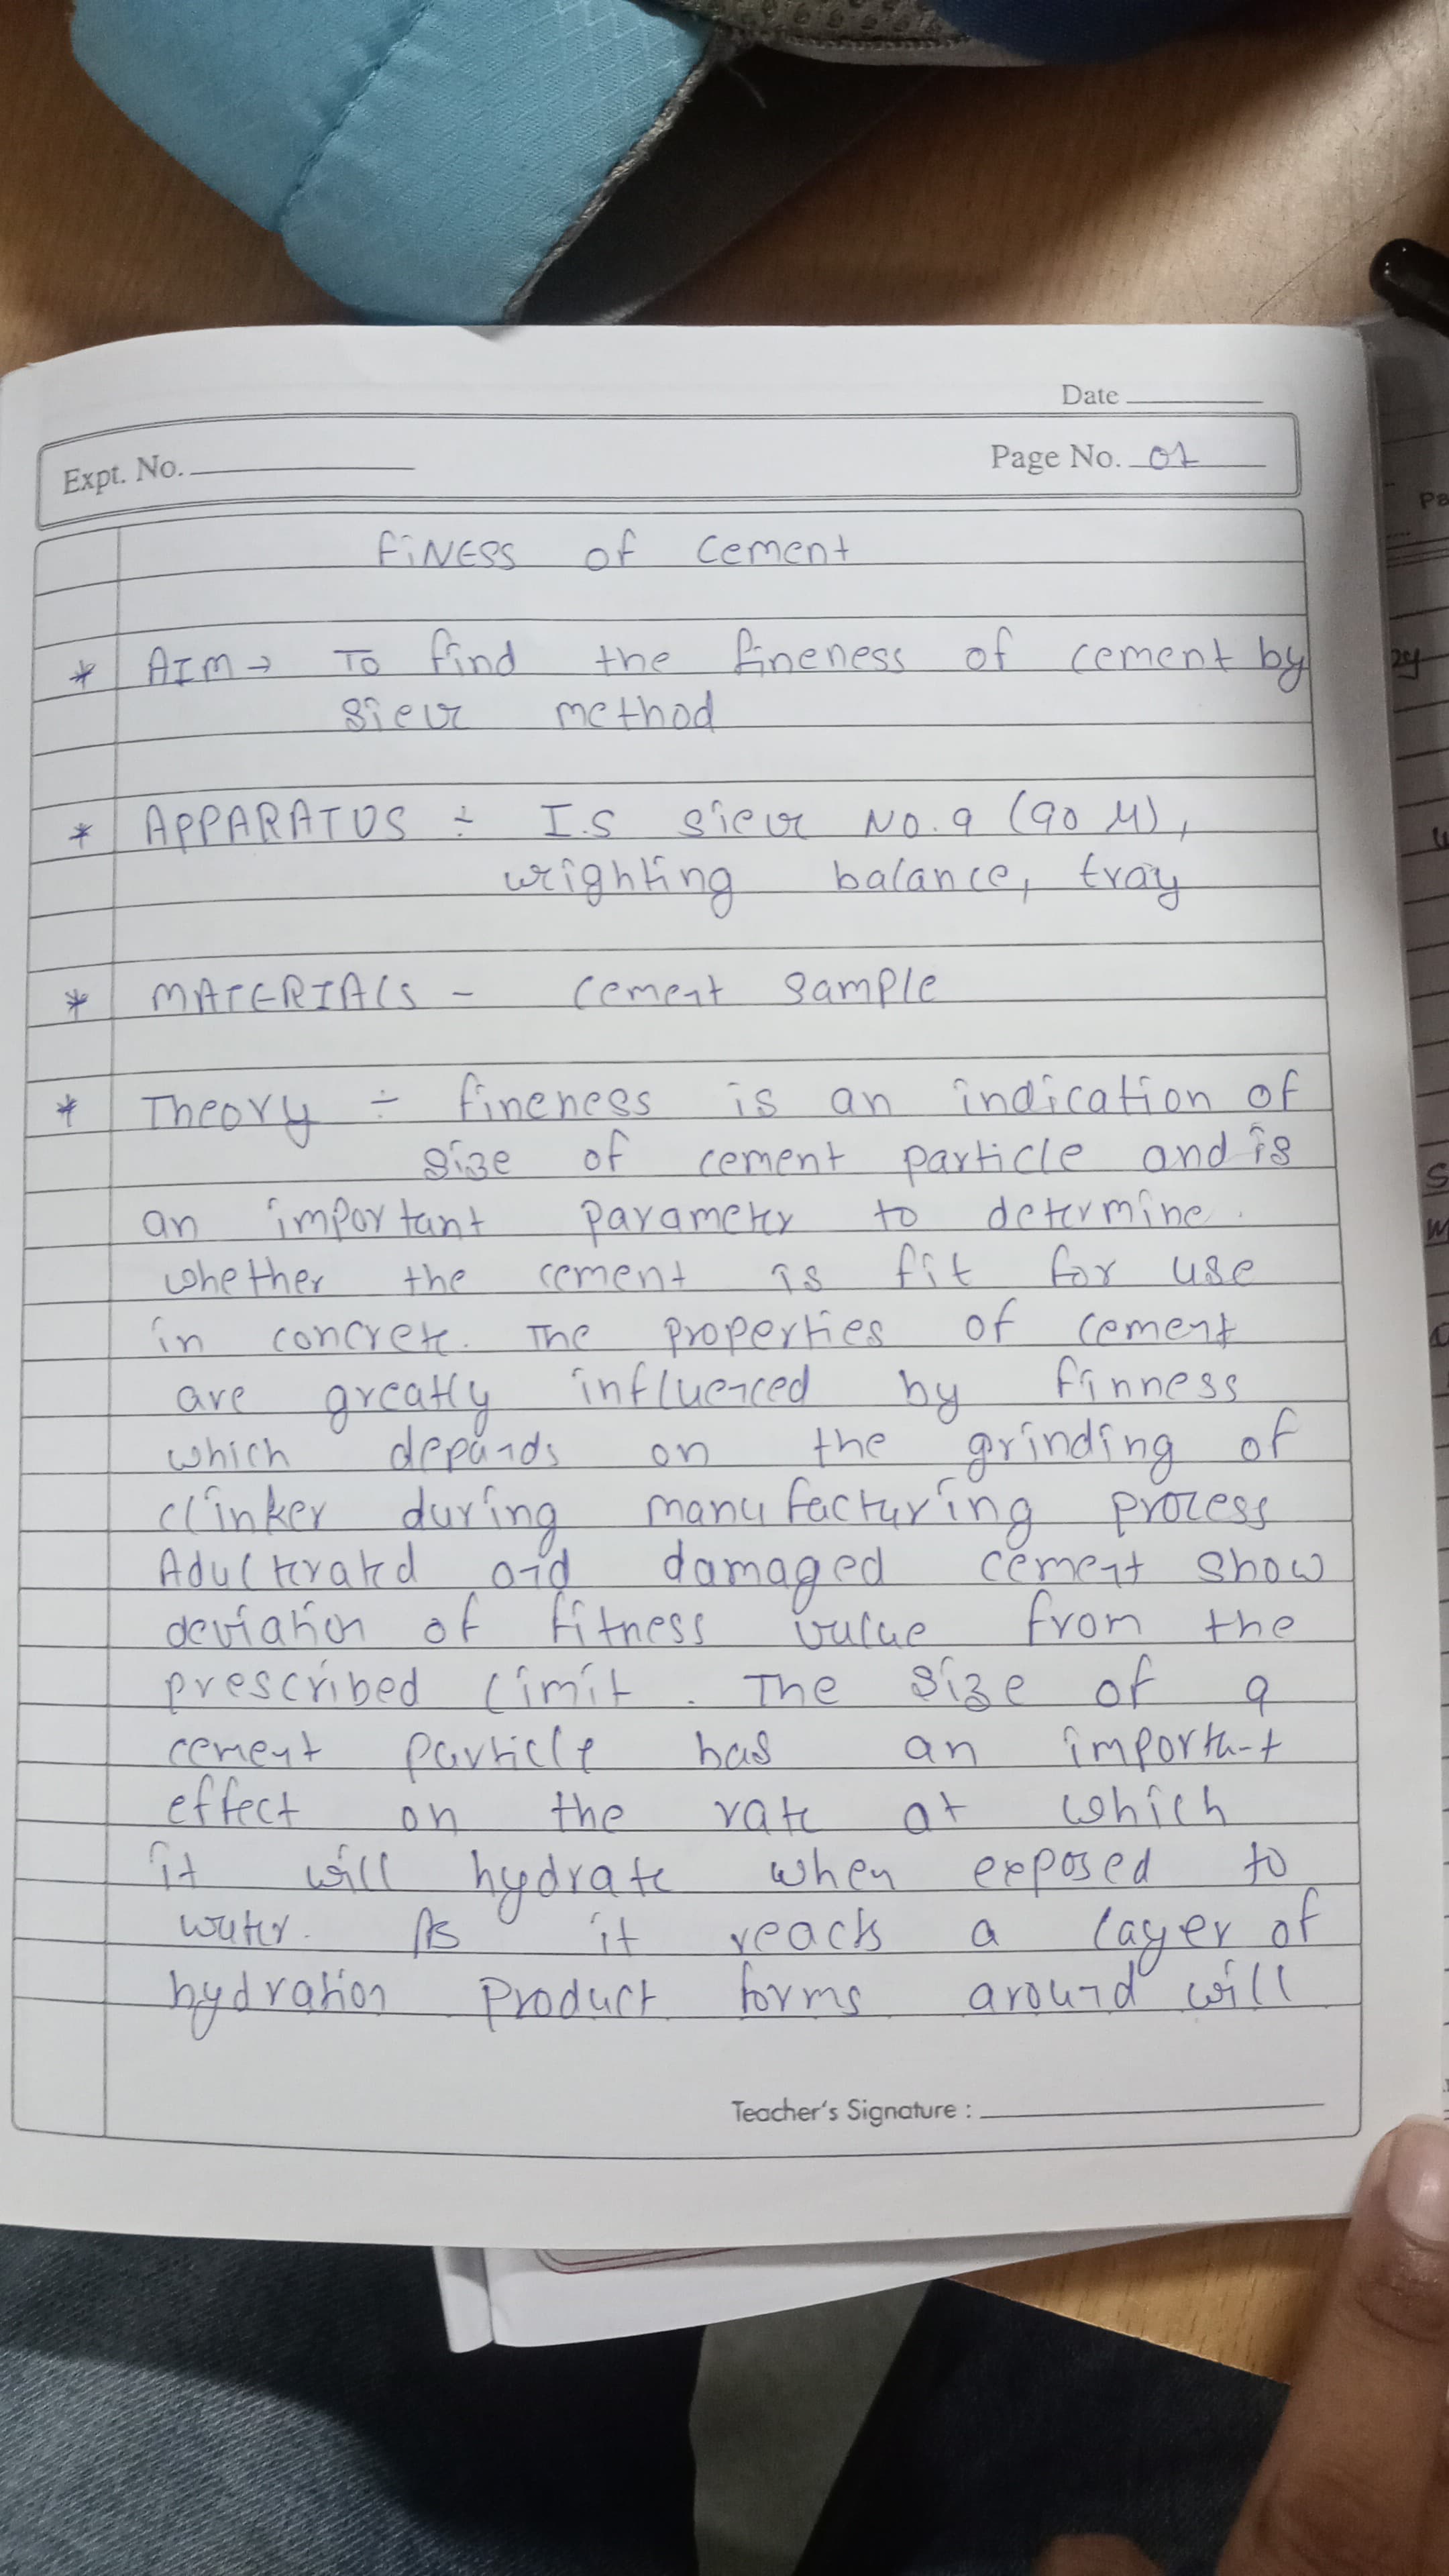 Date
Expt. No.
Page No. 01
FiNESS of cement
* AIM → To find the fineness of cement by
sieve method
* APPARATUS ÷ I.S sieve No. 9 (90 μ),
weighting balance, tray
* MATERIALS - cement sample
* Theory ÷ fineness is an indication of
size of cement particle and is
an important parameter to determine.
whether the cement is fit for use
in concrete. The properties of cement
are greatly influenced by finness
which depends on the grinding of
clinker during manufacturing process
Adulterated and damaged cement show
deviation of fitness value from the
prescribed limit. The size of a
cement particle has an important
effect on the rate at which
it will hydrate when exposed to
water. As it reacts a layer of
hydration product forms around will
Teacher's Signature :